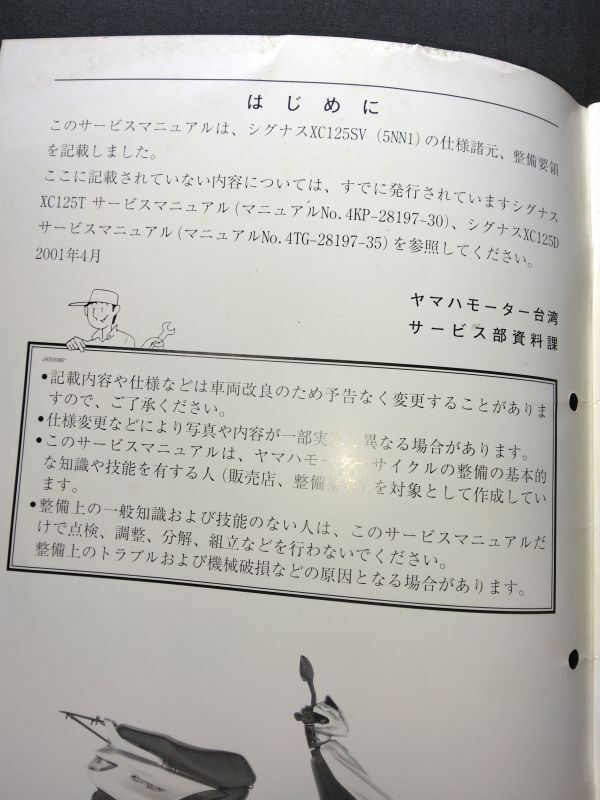 はじめに
このサービスマニュアルは、シグナスXC125SV（5NN1）の仕様諸元、整備要領
を記載しました。
ここに記載されていない内容については、すでに発行されていますシグナス
XC125T サービスマニュアル（マニュアルNo.4KP-28197-30）、シグナスXC125D
サービスマニュアル（マニュアルNo.4TG-28197-35）を参照してください。
2001年4月
ヤマハモーター台湾
サービス部資料課
●記載内容や仕様などは車両改良のため予告なく変更することがありま
すので、ご了承ください。
●仕様変更などにより写真や内容が一部実 異なる場合があります。
●このサービスマニュアルは、ヤマハモー サイクルの整備の基本的
な知識や技能を有する人（販売店、整備 を対象として作成してい
ます。
●整備上の一般知識および技能のない人は、このサービスマニュアルだ
けで点検、調整、分解、組立などを行わないでください。
整備上のトラブルおよび機械破損などの原因となる場合があります。